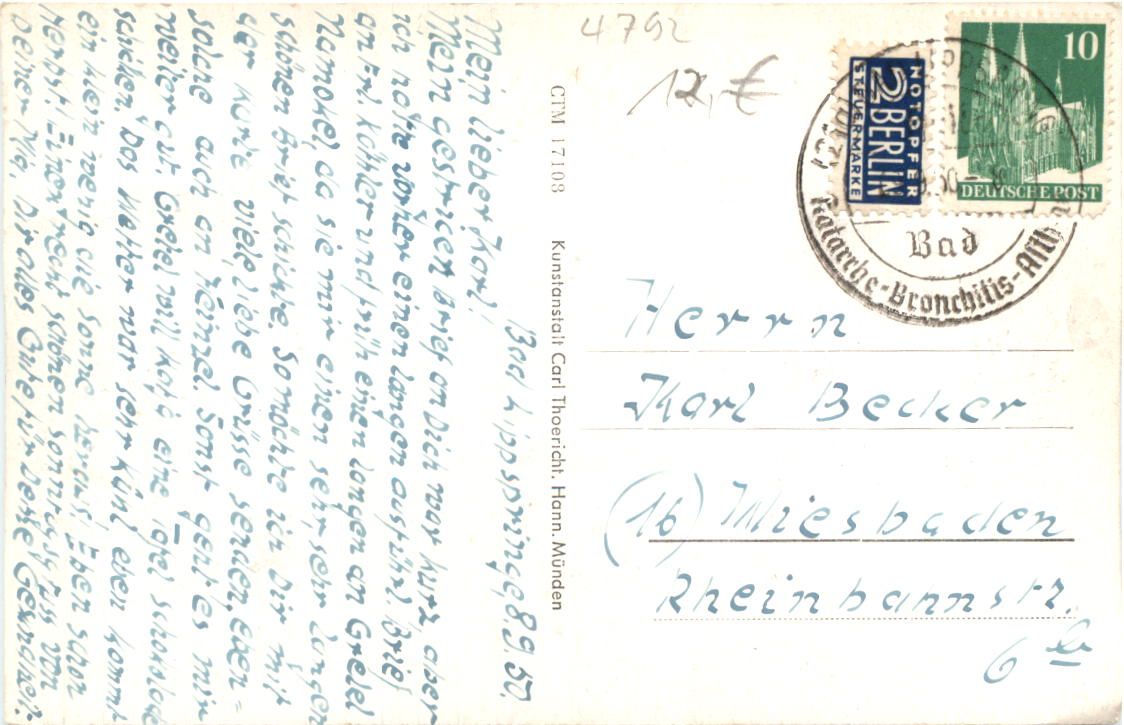 Bad Lippspringe 8.9.50.
Mein lieber Karl!
Mein gestriger Brief an Dich war kurz, aber
ich hatte vorher einen langen ausführl. Brief
an Frl. Köhler und früh einen langen an Gretel
da sie mir einen sehr, sehr langen
schönen Brief schickte. So möchte ich Dir mit
der Karte viele liebe Grüsse senden, eben=
solche auch an Heinzel. Sonst geht es mir
weiter gut. Gretel will Kath. eine Tafel Schokolade
schicken. Das Wetter war sehr kühl, eben kommt
ein klein wenig die Sonne heraus. Eben schon
Herbst! Einen recht schönen Sonntag
Deiner Mia. Dir alles Gute für Deine Gesundheit.
CTM 17103 Kunstanstalt Carl Thoericht. Hann. Münden
4792
12,- €
NOTOPFER
2 BERLIN
STEUERMARKE
10
DEUTSCHE POST
Bad
Katarrhe-Bronchitis-Asth
Herrn
Karl Becker
(16) Wiesbaden
Rheinbahnstr.
6 b